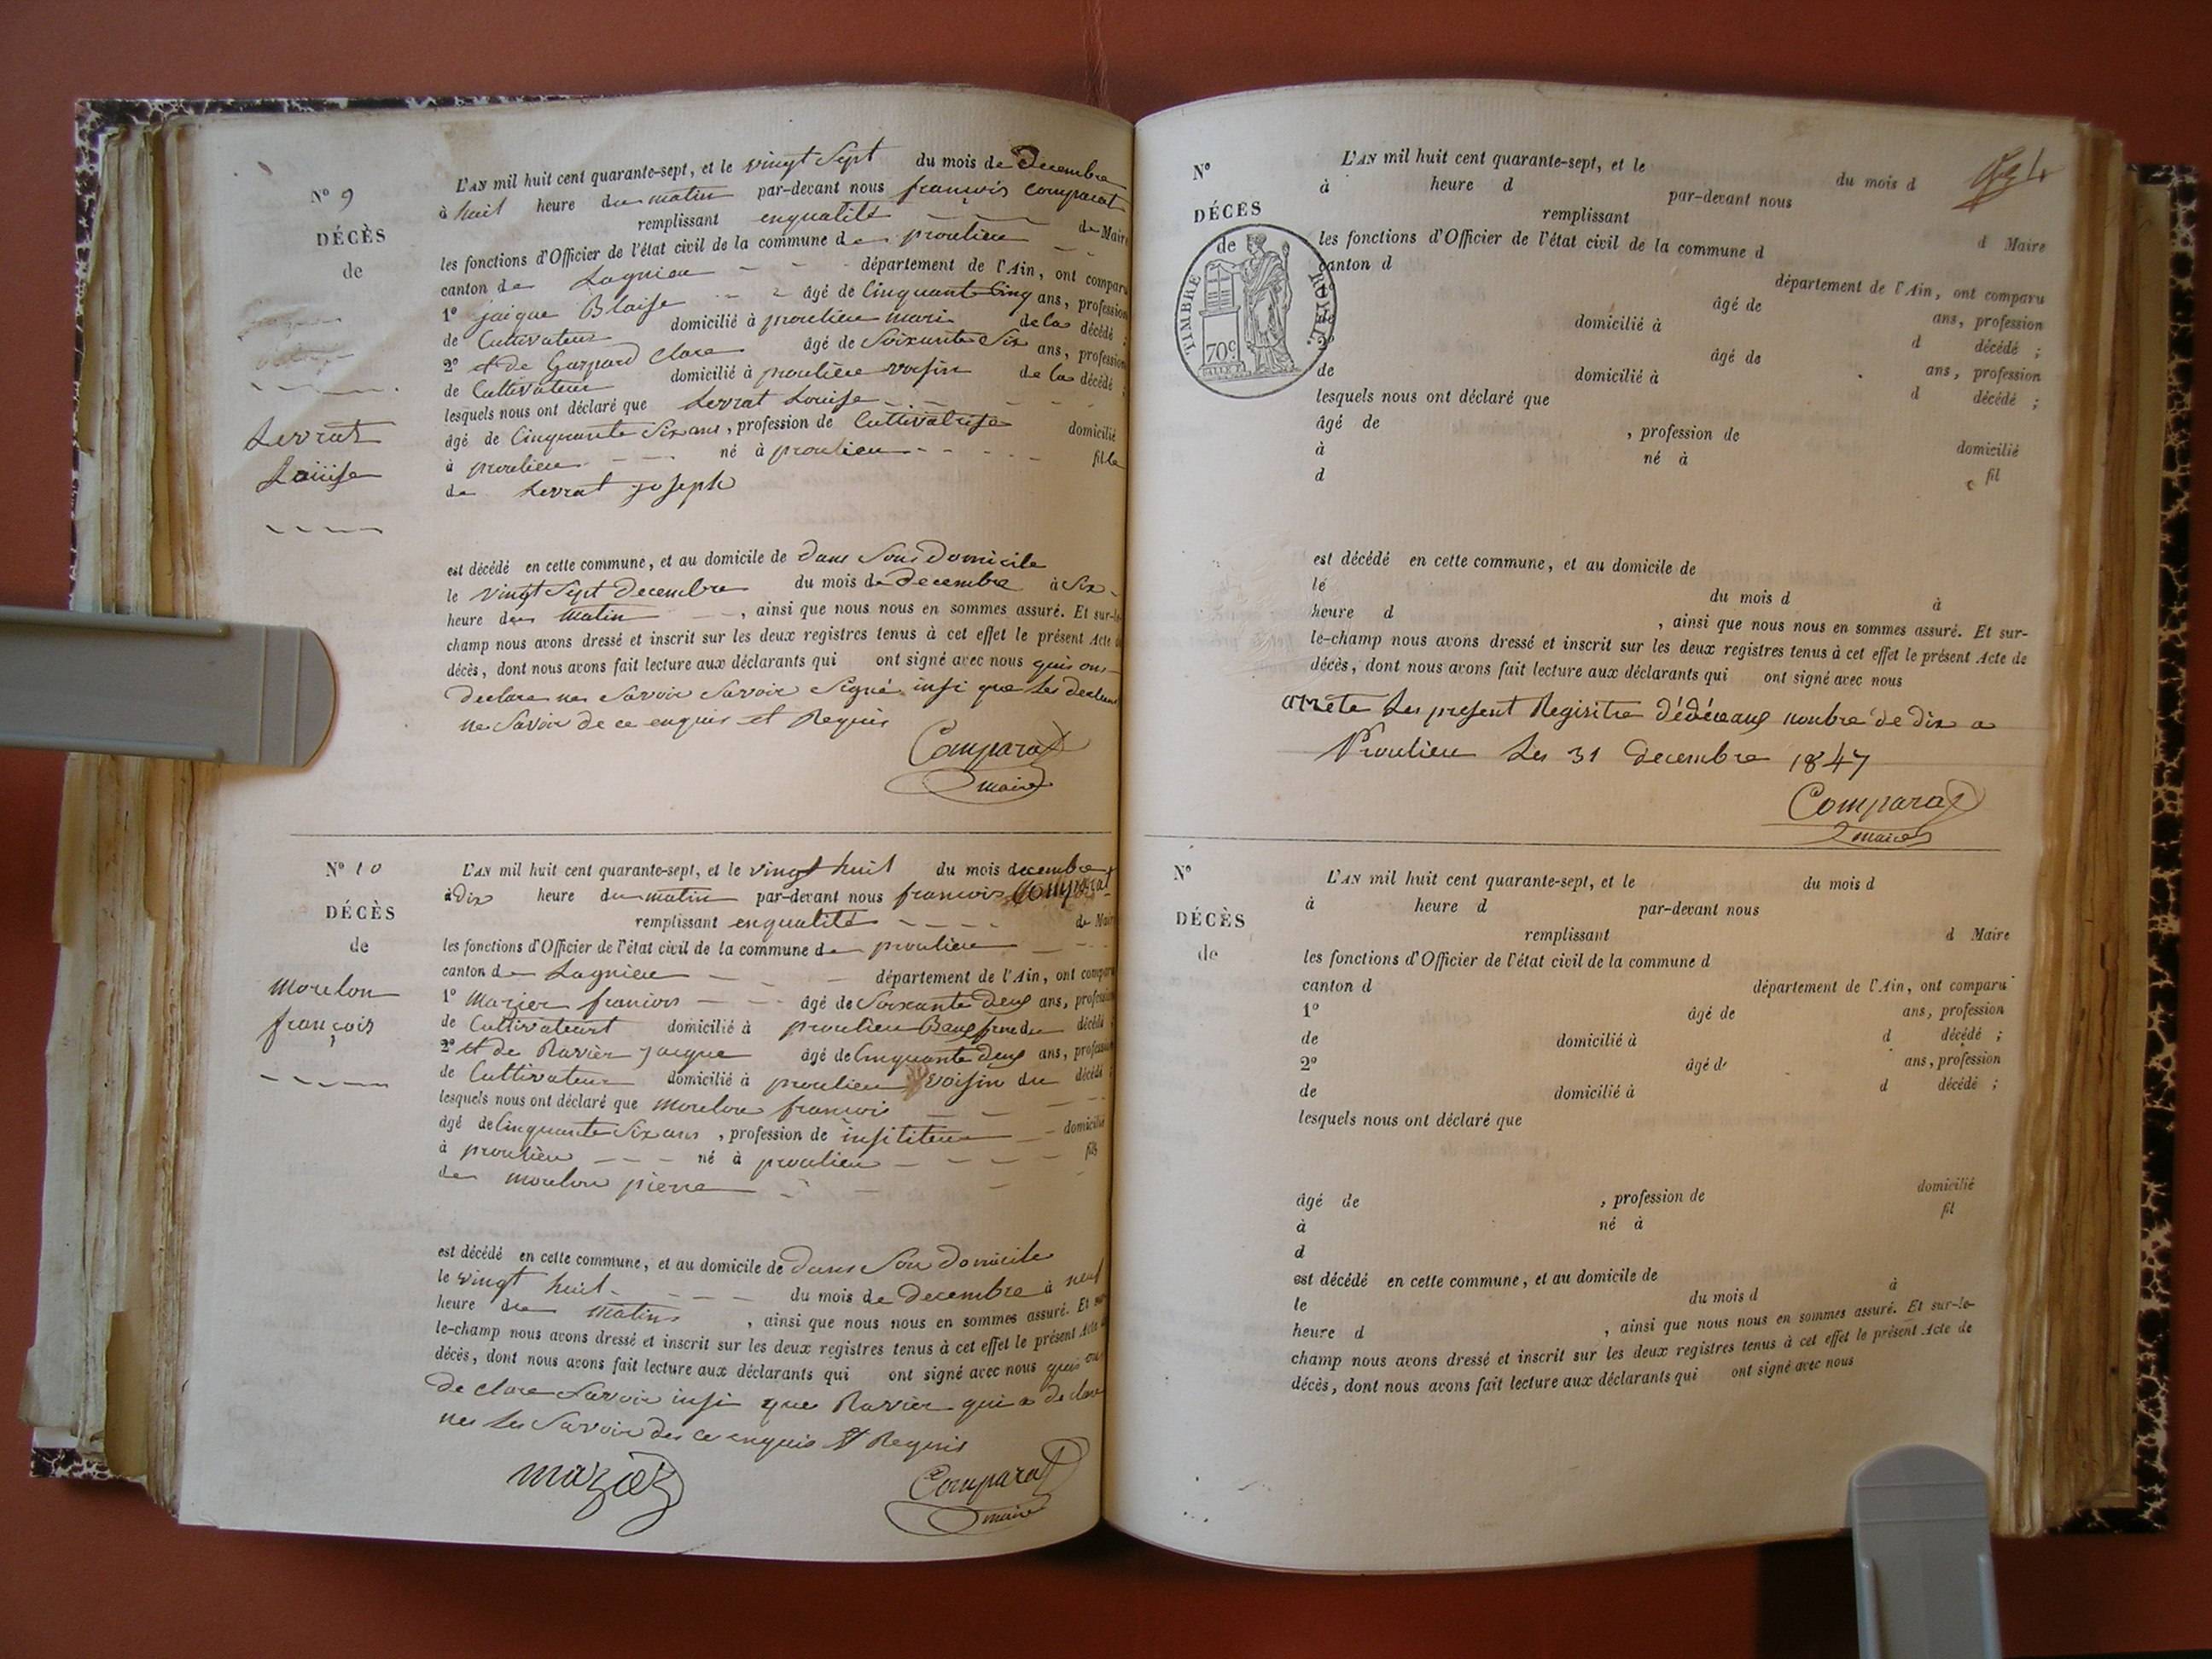 N° 9
DÉCÈS
de
Levrat
Louise
L'AN mil huit cent quarante-sept, et le vingt Sept du mois de Decembre
à huit heure du matin par-devant nous françois Comparat
remplissant enqualité de Maire
les fonctions d'Officier de l'état civil de la commune de proulieu
canton de Lagnieu département de l'Ain, ont comparu
1° jaique Blaise âgé de Cinquante Cinq ans, profession
de Cultivateur domicilié à proulieu mari de la décédé ;
2° et de Gaspard Clare âgé de Soixante Six ans, profession
de Cultivateur domicilié à proulieu voisin de la décédé ;
lesquels nous ont déclaré que Levrat Louise
âgé de Cinquante Six ans, profession de Cultivatrise domicilié
à proulieu né à proulieu fille
de Levrat joseph
est décédé en cette commune, et au domicile de dans Son Domicile
le vingt Sept Decembre du mois de decembre à Six
heure du matin, ainsi que nous nous en sommes assuré. Et sur-le-
champ nous avons dressé et inscrit sur les deux registres tenus à cet effet le présent Acte de
décès, dont nous avons fait lecture aux déclarants qui ont signé avec nous quis ons
declare ne Savoir Savoir Signé insi que les
ne Savoir de ce enquis et Requis
Comparat
maire
N° 10
DÉCÈS
de
Moulon
françois
L'AN mil huit cent quarante-sept, et le vingt huit du mois decembre
à dix heure du matin par-devant nous francois Comparat
remplissant enqualité de Maire
les fonctions d'Officier de l'état civil de la commune de proulieu
canton de Lagnieu département de l'Ain, ont comparu
1° Mazier francois âgé de Soixante deux ans, profession
de Cultivateurt domicilié à proulieu Baux frere du décédé ;
2° et de Ravier jacque âgé de Cinquante deux ans, profession
de Cultivateur domicilié à proulieu voisin du décédé ;
lesquels nous ont déclaré que moulon francois
âgé de Cinquante Six ans, profession de insititeur domicilié
à proulieu né à proulieu fils
de moulon pierre
est décédé en cette commune, et au domicile de dans Son Domicile
le vingt huit du mois de decembre à neuf
heure du matin, ainsi que nous nous en sommes assuré. Et sur-
le-champ nous avons dressé et inscrit sur les deux registres tenus à cet effet le présent Acte de
décès, dont nous avons fait lecture aux déclarants qui ont signé avec nous quis ons
de clare Savoir insi que Ravier qui a de clare
ne les Savoir de ce enquis et Requis
maziez
Comparat
maire
N°
DÉCÈS
de
TIMBRE ROYAL
70c
L'AN mil huit cent quarante-sept, et le du mois d
à heure d par-devant nous
remplissant d Maire
les fonctions d'Officier de l'état civil de la commune d
canton d département de l'Ain, ont comparu
âgé de ans, profession
domicilié à d décédé ;
âgé de ans, profession
de domicilié à d décédé ;
lesquels nous ont déclaré que
âgé de , profession de domicilié
à né à fil
d
est décédé en cette commune, et au domicile de
le du mois d à
heure d , ainsi que nous nous en sommes assuré. Et sur-
le-champ nous avons dressé et inscrit sur les deux registres tenus à cet effet le présent Acte de
décès, dont nous avons fait lecture aux déclarants qui ont signé avec nous
arrete Les present Regisitre nonbre de dix a
Proulieu Les 31 decembre 1847
Comparat
maire
N°
DÉCÈS
de
L'AN mil huit cent quarante-sept, et le du mois d
à heure d par-devant nous
remplissant d Maire
les fonctions d'Officier de l'état civil de la commune d
canton d département de l'Ain, ont comparu
1° âgé de ans, profession
de domicilié à d décédé ;
2° âgé de ans, profession
de domicilié à d décédé ;
lesquels nous ont déclaré que
âgé de , profession de domicilié
à né à fil
d
est décédé en cette commune, et au domicile de
le du mois d à
heure d , ainsi que nous nous en sommes assuré. Et sur-le-
champ nous avons dressé et inscrit sur les deux registres tenus à cet effet le présent Acte de
décès, dont nous avons fait lecture aux déclarants qui ont signé avec nous